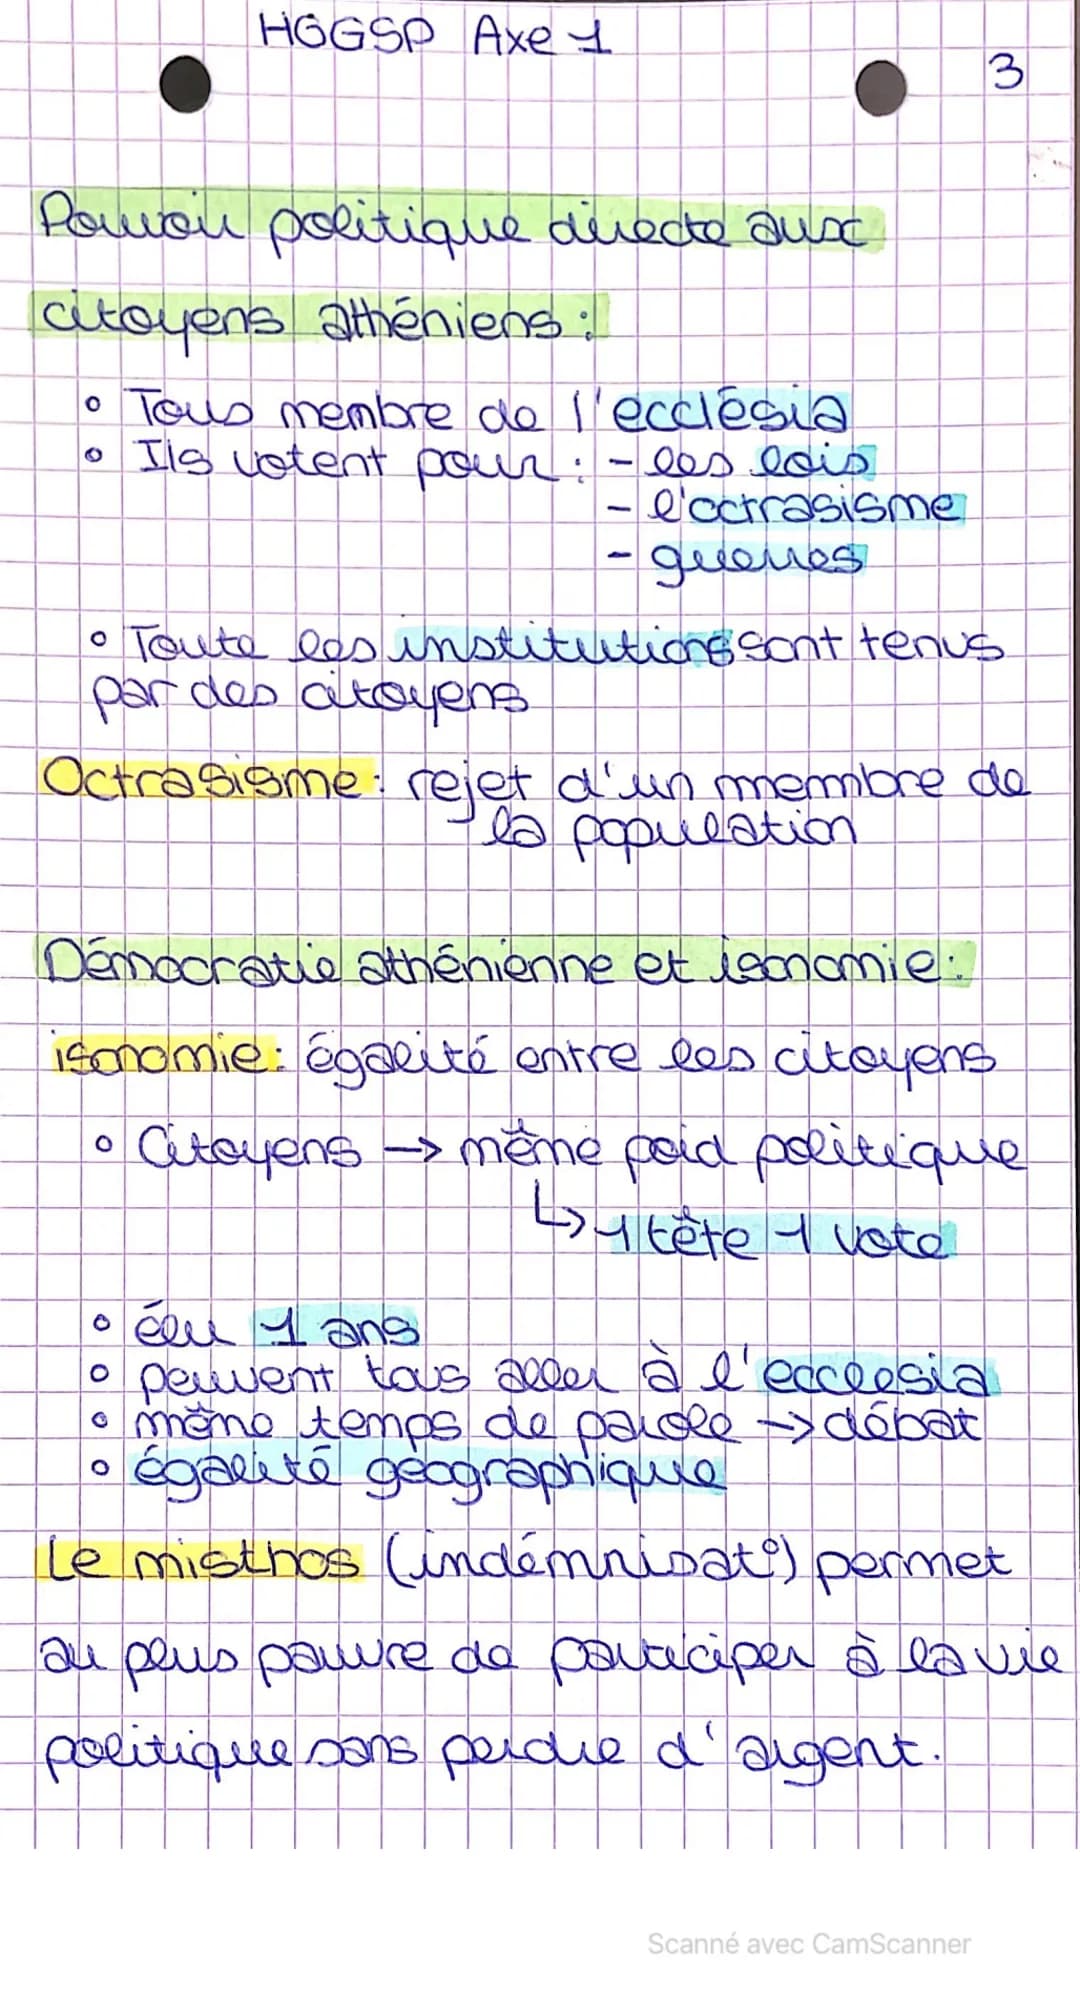 HGGSP Axe 1
3
Pouvoir politique directe aux
citoyens athéniens :
Tous membre de l'ecclésia
Ils votent pour : - les lois
- l'octrasisme
- guerres
Toute les institutions sont tenus
par des citoyens
Octrasisme : rejet d'un membre de
la population
Démocratie athénienne et isonomie :
isonomie : égalité entre les citoyens
Citoyens -> même poid politique
↳ 1 tête 1 vote
élu 1 ans
peuvent tous aller à l'ecclesia
même temps de parole -> débat
égalité géographique
Le misthos (indémnisat°) permet
au plus pauvre de participer à la vie
politique sans perdre d'argent.
Scanné avec CamScanner